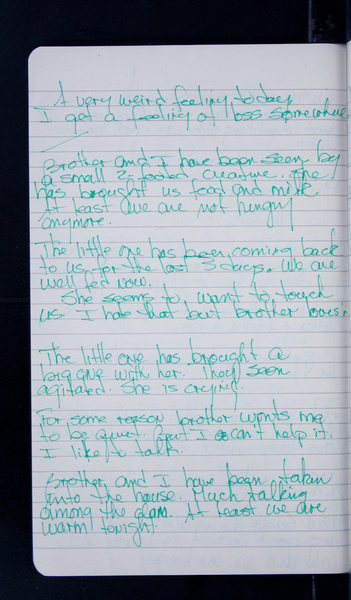 A very weird feeling today
I got a feeling of loss somewhere
Brother and I have been seen by
a small 2 footed creature. She
has brought us food and milk
At least we are not hungry
anymore.
The little one has been coming back
to us for the last 3 days. We are
well fed now.
She seems to want to touch
us I hate that but brother loves it
The little one has brought a
big one with her. They seem
agitated. She is crying.
For some reason brother wants me
to be quiet. But I can't help it.
I like to talk.
Brother and I have been taken
into the house. Much talking
among the clan. At least we are
warm tonight.